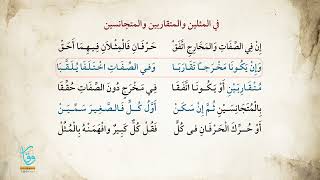 في المثلين والمتقاربين والمتجانسين
إِنْ فِي الصِّفَاتِ وَالمَخَارِجِ اتَّفَقْ حَرْفَانِ فَالْمِثْلَانِ فِيهِمَا أَحَقْ
وَإِنْ يَكُونَا مَخْرَجًا تَقَارَبَا وَفِي الصِّفَاتِ اخْتَلَفَا يُلَقَّبَا
مُتَقَارِبَيْنِ أَوْ يَكُونَا اتَّفَقَا فِي مَخْرَجٍ دُونَ الصِّفَاتِ حُقِّقَا
بِالْمُتَجَانِسَيْنِ ثُمَّ إِنْ سَكَنْ أَوَّلُ كُلٍّ فَالصَّغِيرَ سَمِّيَنْ
أَوْ حُرِّكَ الْحَرْفَانِ فِي كُلٍّ فَقُلْ كُلٌّ كَبِيرٌ وَافْهَمَنْهُ بِالْمُثُلْ